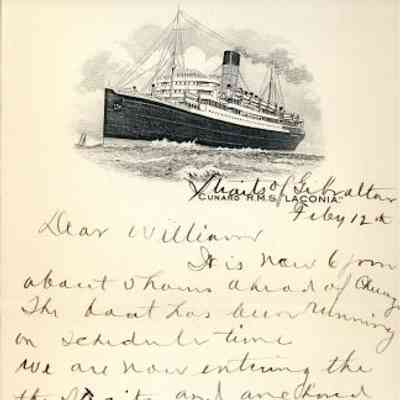 Straits of Gibraltar
CUNARD R.M.S. "LACONIA"
Feby 12th
Dear William
It is now 6 pm
about 5 hours ahead of
The boat has been running
on schedule time
we are now entering the
the Straits and